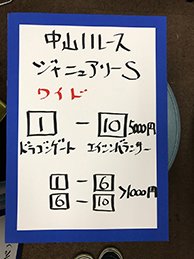 中山11レース
ジャニュアリーS
ワイド
1 - 10 5000円
ドラゴンゲート エイシンバランサー
1 - 6
6 - 10 >1000円